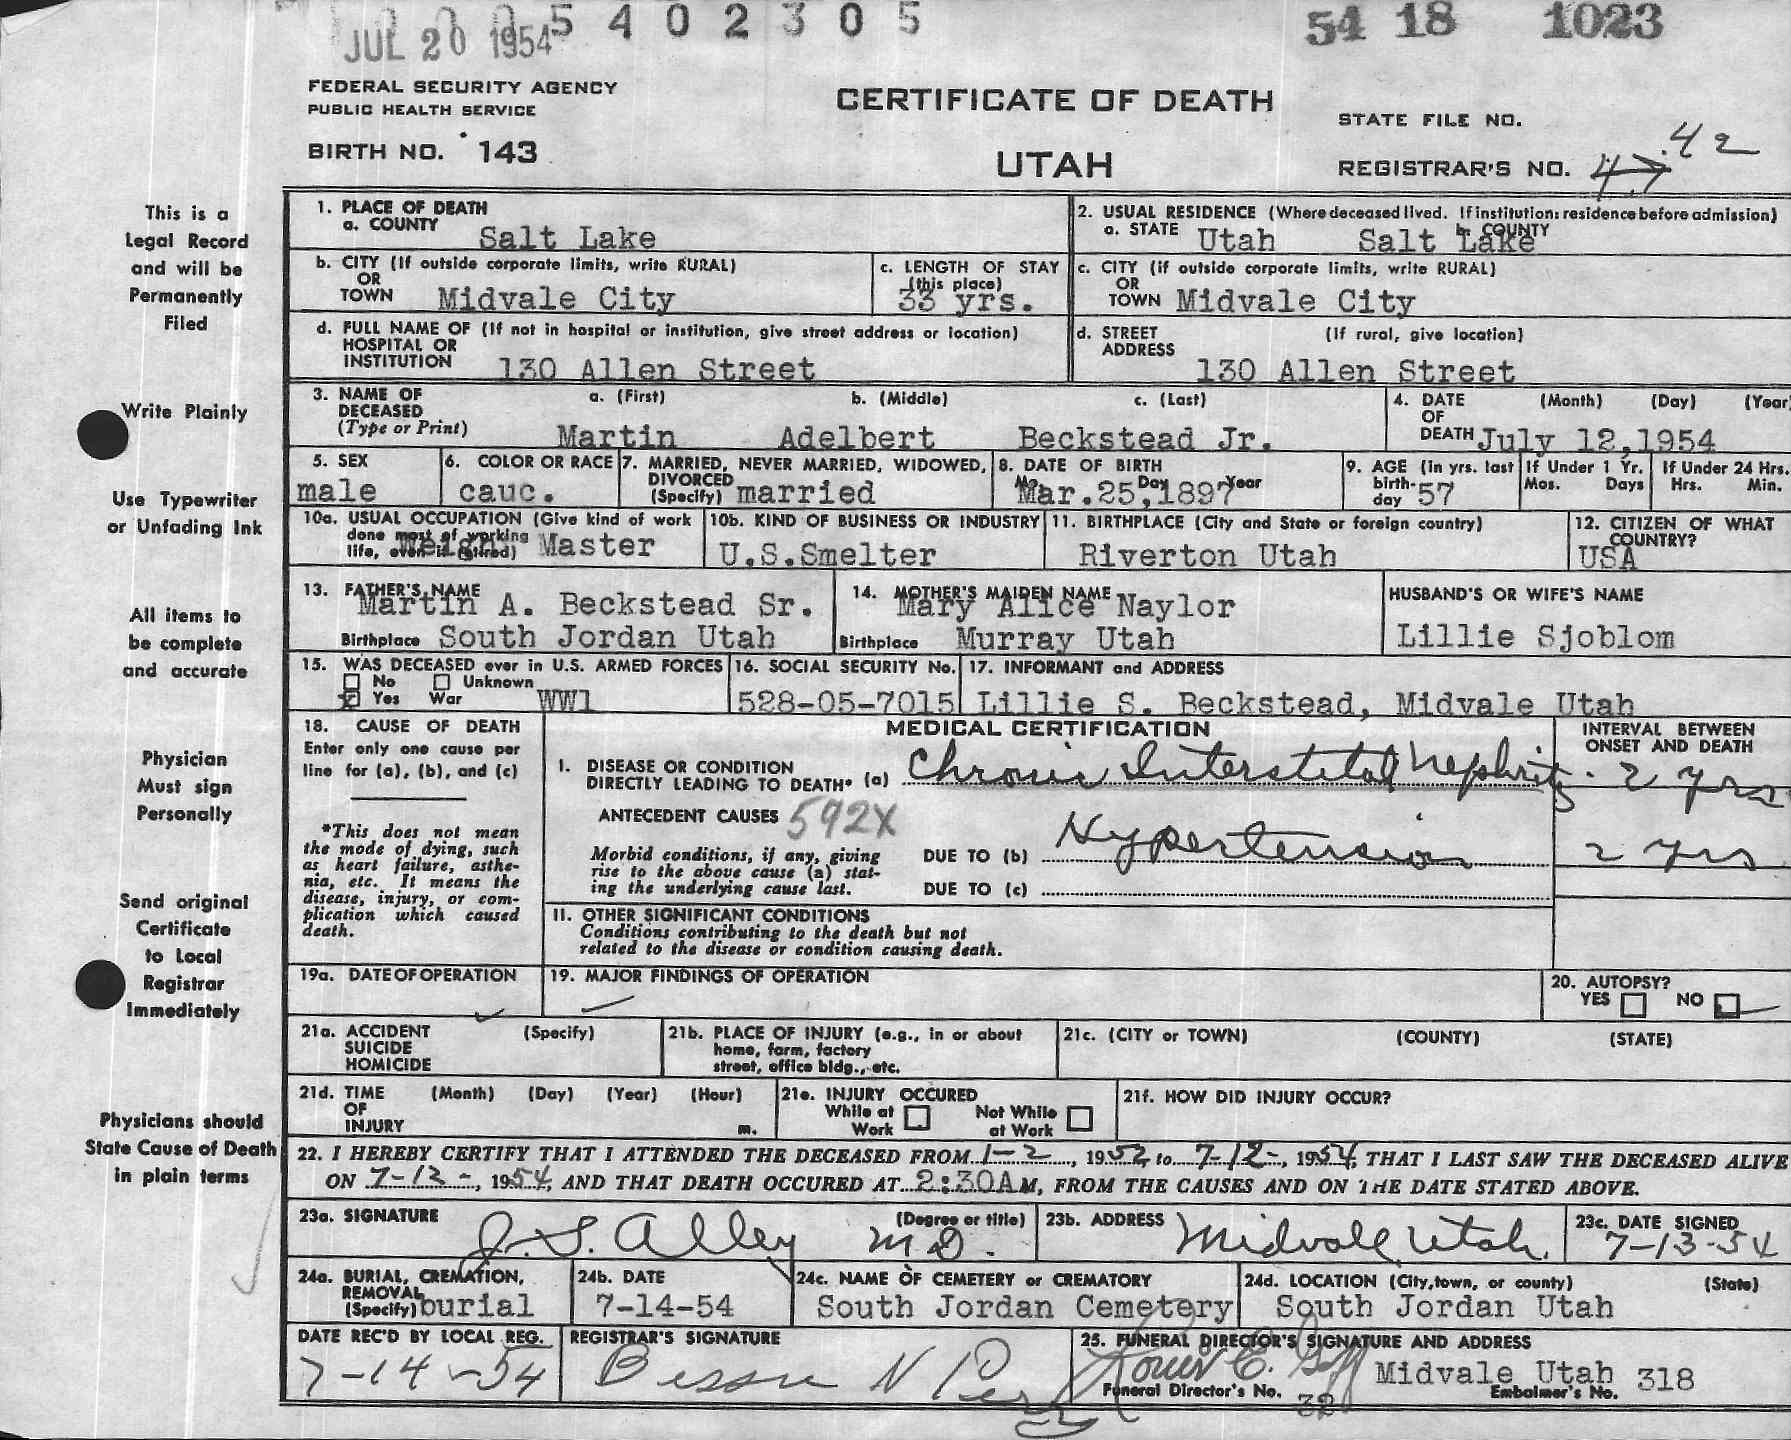 JUL 20 1954 5 4 0 2 3 0 5 54 18 1023
FEDERAL SECURITY AGENCY
PUBLIC HEALTH SERVICE
BIRTH NO. 143
CERTIFICATE OF DEATH
UTAH
STATE FILE NO.
REGISTRAR'S NO. 47 42
This is a
Legal Record
and will be
Permanently
Filed
Write Plainly
Use Typewriter
or Unfading Ink
All items to
be complete
and accurate
Physician
Must sign
Personally
Send original
Certificate
to Local
Registrar
Immediately
Physicians should
State Cause of Death
in plain terms
1. PLACE OF DEATH
a. COUNTY Salt Lake
2. USUAL RESIDENCE (Where deceased lived. If institution: residence before admission)
a. STATE Utah b. COUNTY Salt Lake
b. CITY (If outside corporate limits, write RURAL)
OR
TOWN Midvale City
c. LENGTH OF STAY
(this place)
33 yrs.
c. CITY (if outside corporate limits, write RURAL)
OR
TOWN Midvale City
d. FULL NAME OF (If not in hospital or institution, give street address or location)
HOSPITAL OR
INSTITUTION 130 Allen Street
d. STREET (If rural, give location)
ADDRESS
130 Allen Street
3. NAME OF DECEASED
(Type or Print)
a. (First) b. (Middle) c. (Last)
Martin Adelbert Beckstead Jr.
4. DATE (Month) (Day) (Year)
OF
DEATH July 12, 1954
5. SEX
male
6. COLOR OR RACE
cauc.
7. MARRIED, NEVER MARRIED, WIDOWED,
DIVORCED
(Specify) married
8. DATE OF BIRTH
Mo. Day Year
Mar. 25, 1897
9. AGE (in yrs. last
birth-
day 57
If Under 1 Yr.
Mos. Days
If Under 24 Hrs.
Hrs. Min.
10a. USUAL OCCUPATION (Give kind of work
done most of working
life, even if retired) Weigh Master
10b. KIND OF BUSINESS OR INDUSTRY
U.S.Smelter
11. BIRTHPLACE (City and State or foreign country)
Riverton Utah
12. CITIZEN OF WHAT
COUNTRY?
USA
13. FATHER'S NAME
Martin A. Beckstead Sr.
Birthplace South Jordan Utah
14. MOTHER'S MAIDEN NAME
Mary Alice Naylor
Birthplace Murray Utah
HUSBAND'S OR WIFE'S NAME
Lillie Sjoblom
15. WAS DECEASED ever in U.S. ARMED FORCES
No Unknown
Yes War WW1
16. SOCIAL SECURITY No.
528-05-7015
17. INFORMANT and ADDRESS
Lillie S. Beckstead, Midvale Utah
18. CAUSE OF DEATH
Enter only one cause per
line for (a), (b), and (c)
*This does not mean
the mode of dying, such
as heart failure, asthe-
nia, etc. It means the
disease, injury, or com-
plication which caused
death.
MEDICAL CERTIFICATION
INTERVAL BETWEEN
ONSET AND DEATH
I. DISEASE OR CONDITION
DIRECTLY LEADING TO DEATH* (a) Chronic Interstitial Nephritis. 2 yrs
ANTECEDENT CAUSES 592X
Morbid conditions, if any, giving
rise to the above cause (a) stat-
ing the underlying cause last.
DUE TO (b) Hypertension 2 yrs
DUE TO (c)
II. OTHER SIGNIFICANT CONDITIONS
Conditions contributing to the death but not
related to the disease or condition causing death.
19a. DATE OF OPERATION
19. MAJOR FINDINGS OF OPERATION
20. AUTOPSY?
YES NO
21a. ACCIDENT (Specify)
SUICIDE
HOMICIDE
21b. PLACE OF INJURY (e.g., in or about
home, farm, factory
street, office bldg., etc.
21c. (CITY or TOWN) (COUNTY) (STATE)
21d. TIME (Month) (Day) (Year) (Hour)
OF
INJURY m.
21e. INJURY OCCURED
While at Work Not While at Work
21f. HOW DID INJURY OCCUR?
22. I HEREBY CERTIFY THAT I ATTENDED THE DECEASED FROM 1-2, 1952 to 7-12-, 1954, THAT I LAST SAW THE DECEASED ALIVE
ON 7-12-, 1954, AND THAT DEATH OCCURED AT 2:30AM, FROM THE CAUSES AND ON THE DATE STATED ABOVE.
23a. SIGNATURE (Degree or title)
J. S. Alley M.D.
23b. ADDRESS
Midvale, Utah.
23c. DATE SIGNED
7-13-54
24a. BURIAL, CREMATION,
REMOVAL
(Specify) burial
24b. DATE
7-14-54
24c. NAME OF CEMETERY or CREMATORY
South Jordan Cemetery
24d. LOCATION (City, town, or county) (State)
South Jordan Utah
DATE REC'D BY LOCAL REG.
7-14-54
REGISTRAR'S SIGNATURE
25. FUNERAL DIRECTOR'S SIGNATURE AND ADDRESS
Midvale Utah 318
Funeral Director's No. 32 Embalmer's No.